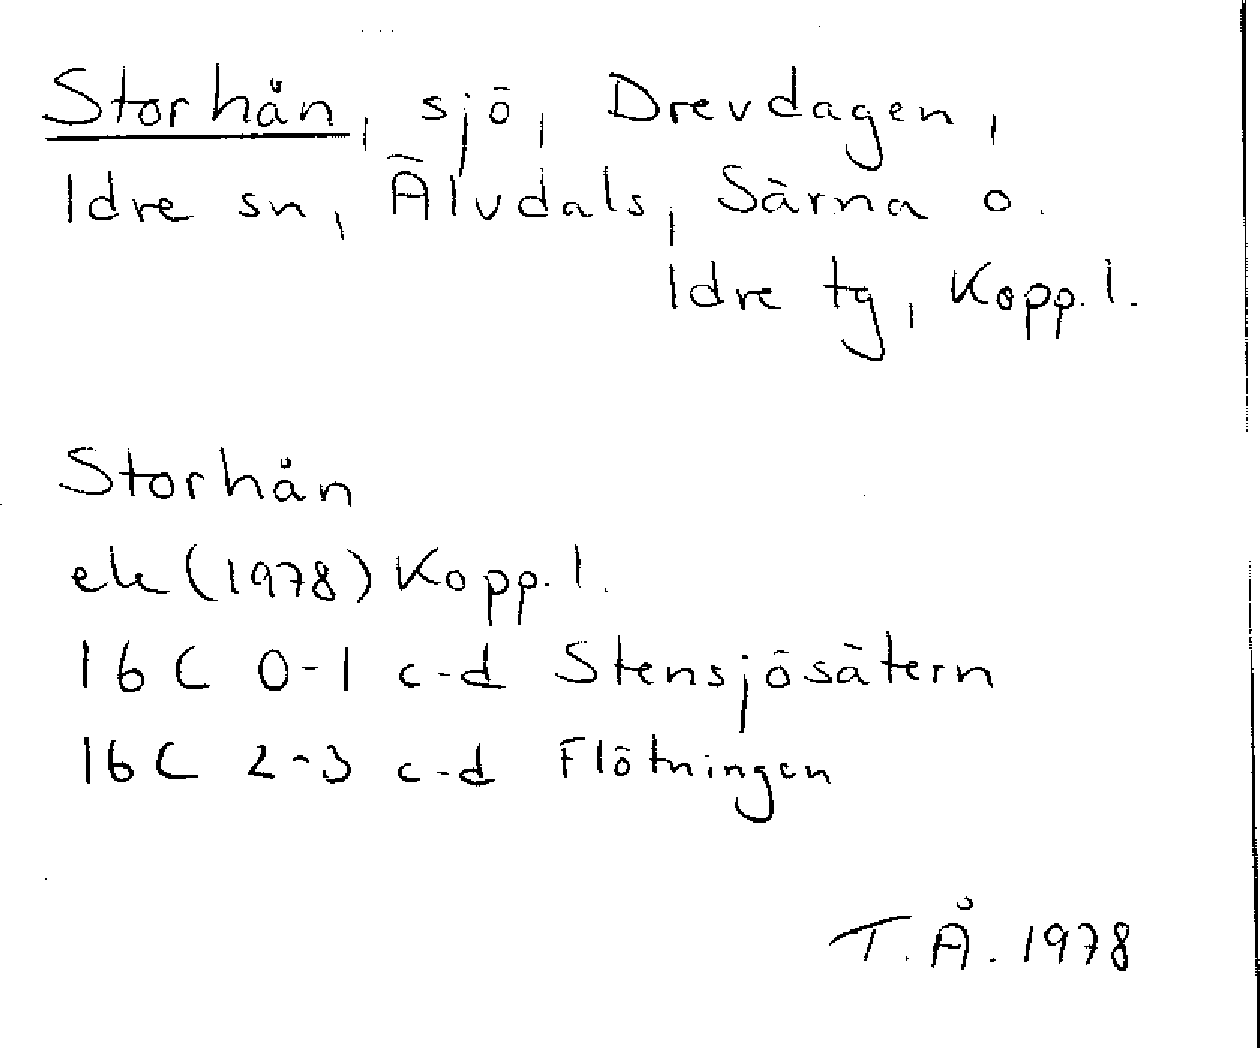 Storhån, sjö, Drevdagen,
Idre sn, Älvdals, Särna o.
Idre tg, Kopp. l.
Storhån
ek (1978) Kopp. l.
16 C 0-1 c-d Stensjösätern
16 C 2-3 c-d Flötningen
T. Å. 1978